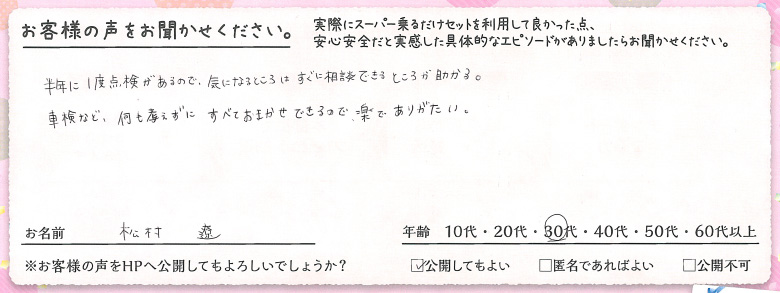 お客様の声をお聞かせください。
実際にスーパー乗るだけセットを利用して良かった点、
安心安全だと実感した具体的なエピソードがありましたらお聞かせください。
半年に1度点検があるので、気になるところはすぐに相談できるところが助かる。
車検など、何も考えずにすべておまかせできるので、楽でありがたい。
お名前 松村 遼
年齢 10代・20代・30代・40代・50代・60代以上
※お客様の声をHPへ公開してもよろしいでしょうか？ ☑公開してもよい □匿名であればよい □公開不可